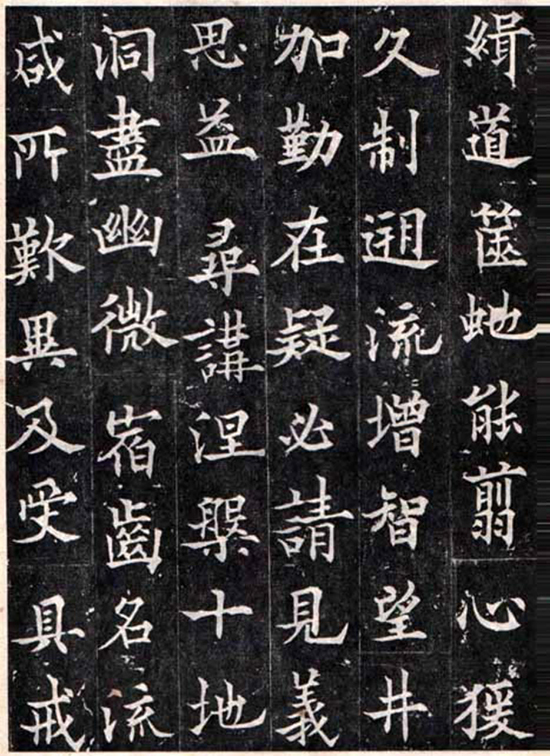 緝道篋虵能翦心猨
久制遡流增智望井
加勤在疑必請見義
思益尋講涅槃十地
洞盡幽微宿齒名流
咸所歎異及受具戒